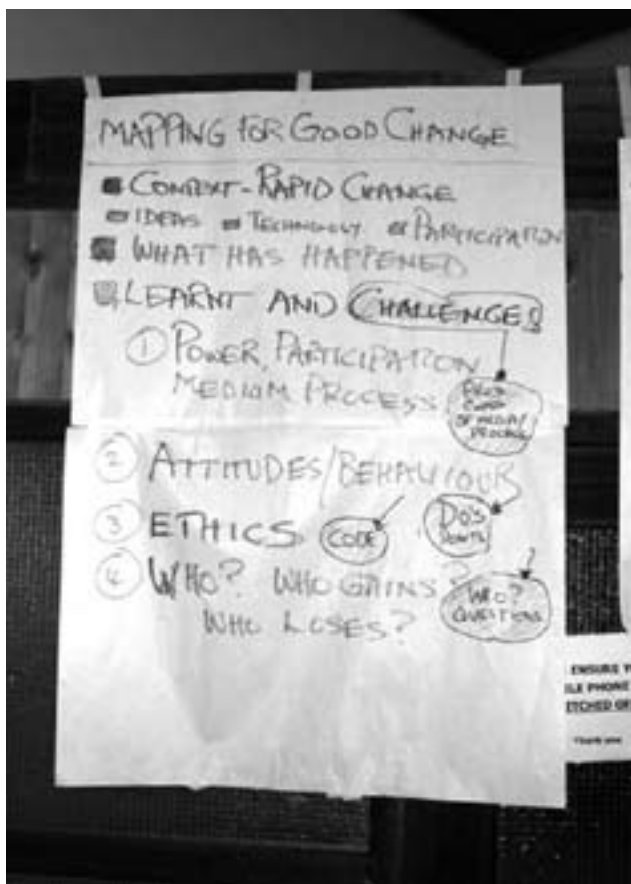 MAPPING FOR GOOD CHANGE
CONTEXT - RAPID CHANGE
IDEAS TECHNOLOGY PARTICIPATION
WHAT HAS HAPPENED
LEARNT AND CHALLENGES
① POWER, PARTICIPATION
MEDIUM PROCESS
OF MEDIA/
PROCESS
② ATTITUDES/BEHAVIOUR
③ ETHICS CODE
DO'S
DONTS
④ WHO? WHO GAINS?
WHO LOSES?
?
WHO?
QUESTIONS
ENSURE
PHONE
Thank you